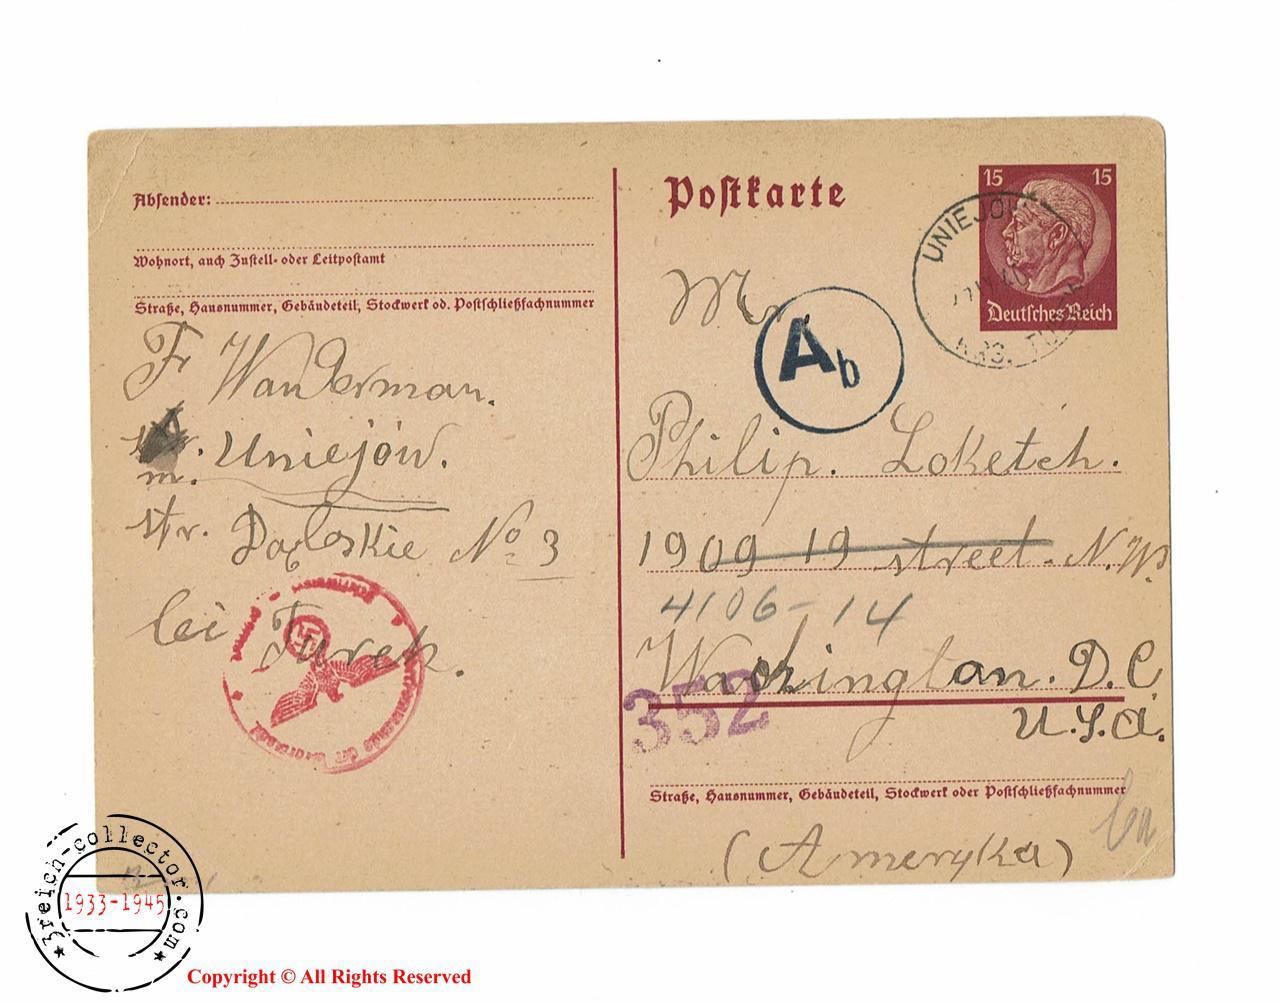 Absender:
Wohnort, auch Zustell- oder Leitpostamt
Straße, Hausnummer, Gebäudeteil, Stockwerk od. Postschließfachnummer
F Wanderman.
m. Uniejów.
str. Dąbskie No 3
bei Turek.
Postkarte
15 15
Deutsches Reich
UNIEJÓW
KRS. TUREK
Mr
Ab
Philip. Loketch.
1909 19 street. N.W.
4106-14
Washington. D.C.
U.S.A.
352
Straße, Hausnummer, Gebäudeteil, Stockwerk oder Postschließfachnummer
(Ameryka)
3reich-collector.com
1933-1945
Copyright © All Rights Reserved